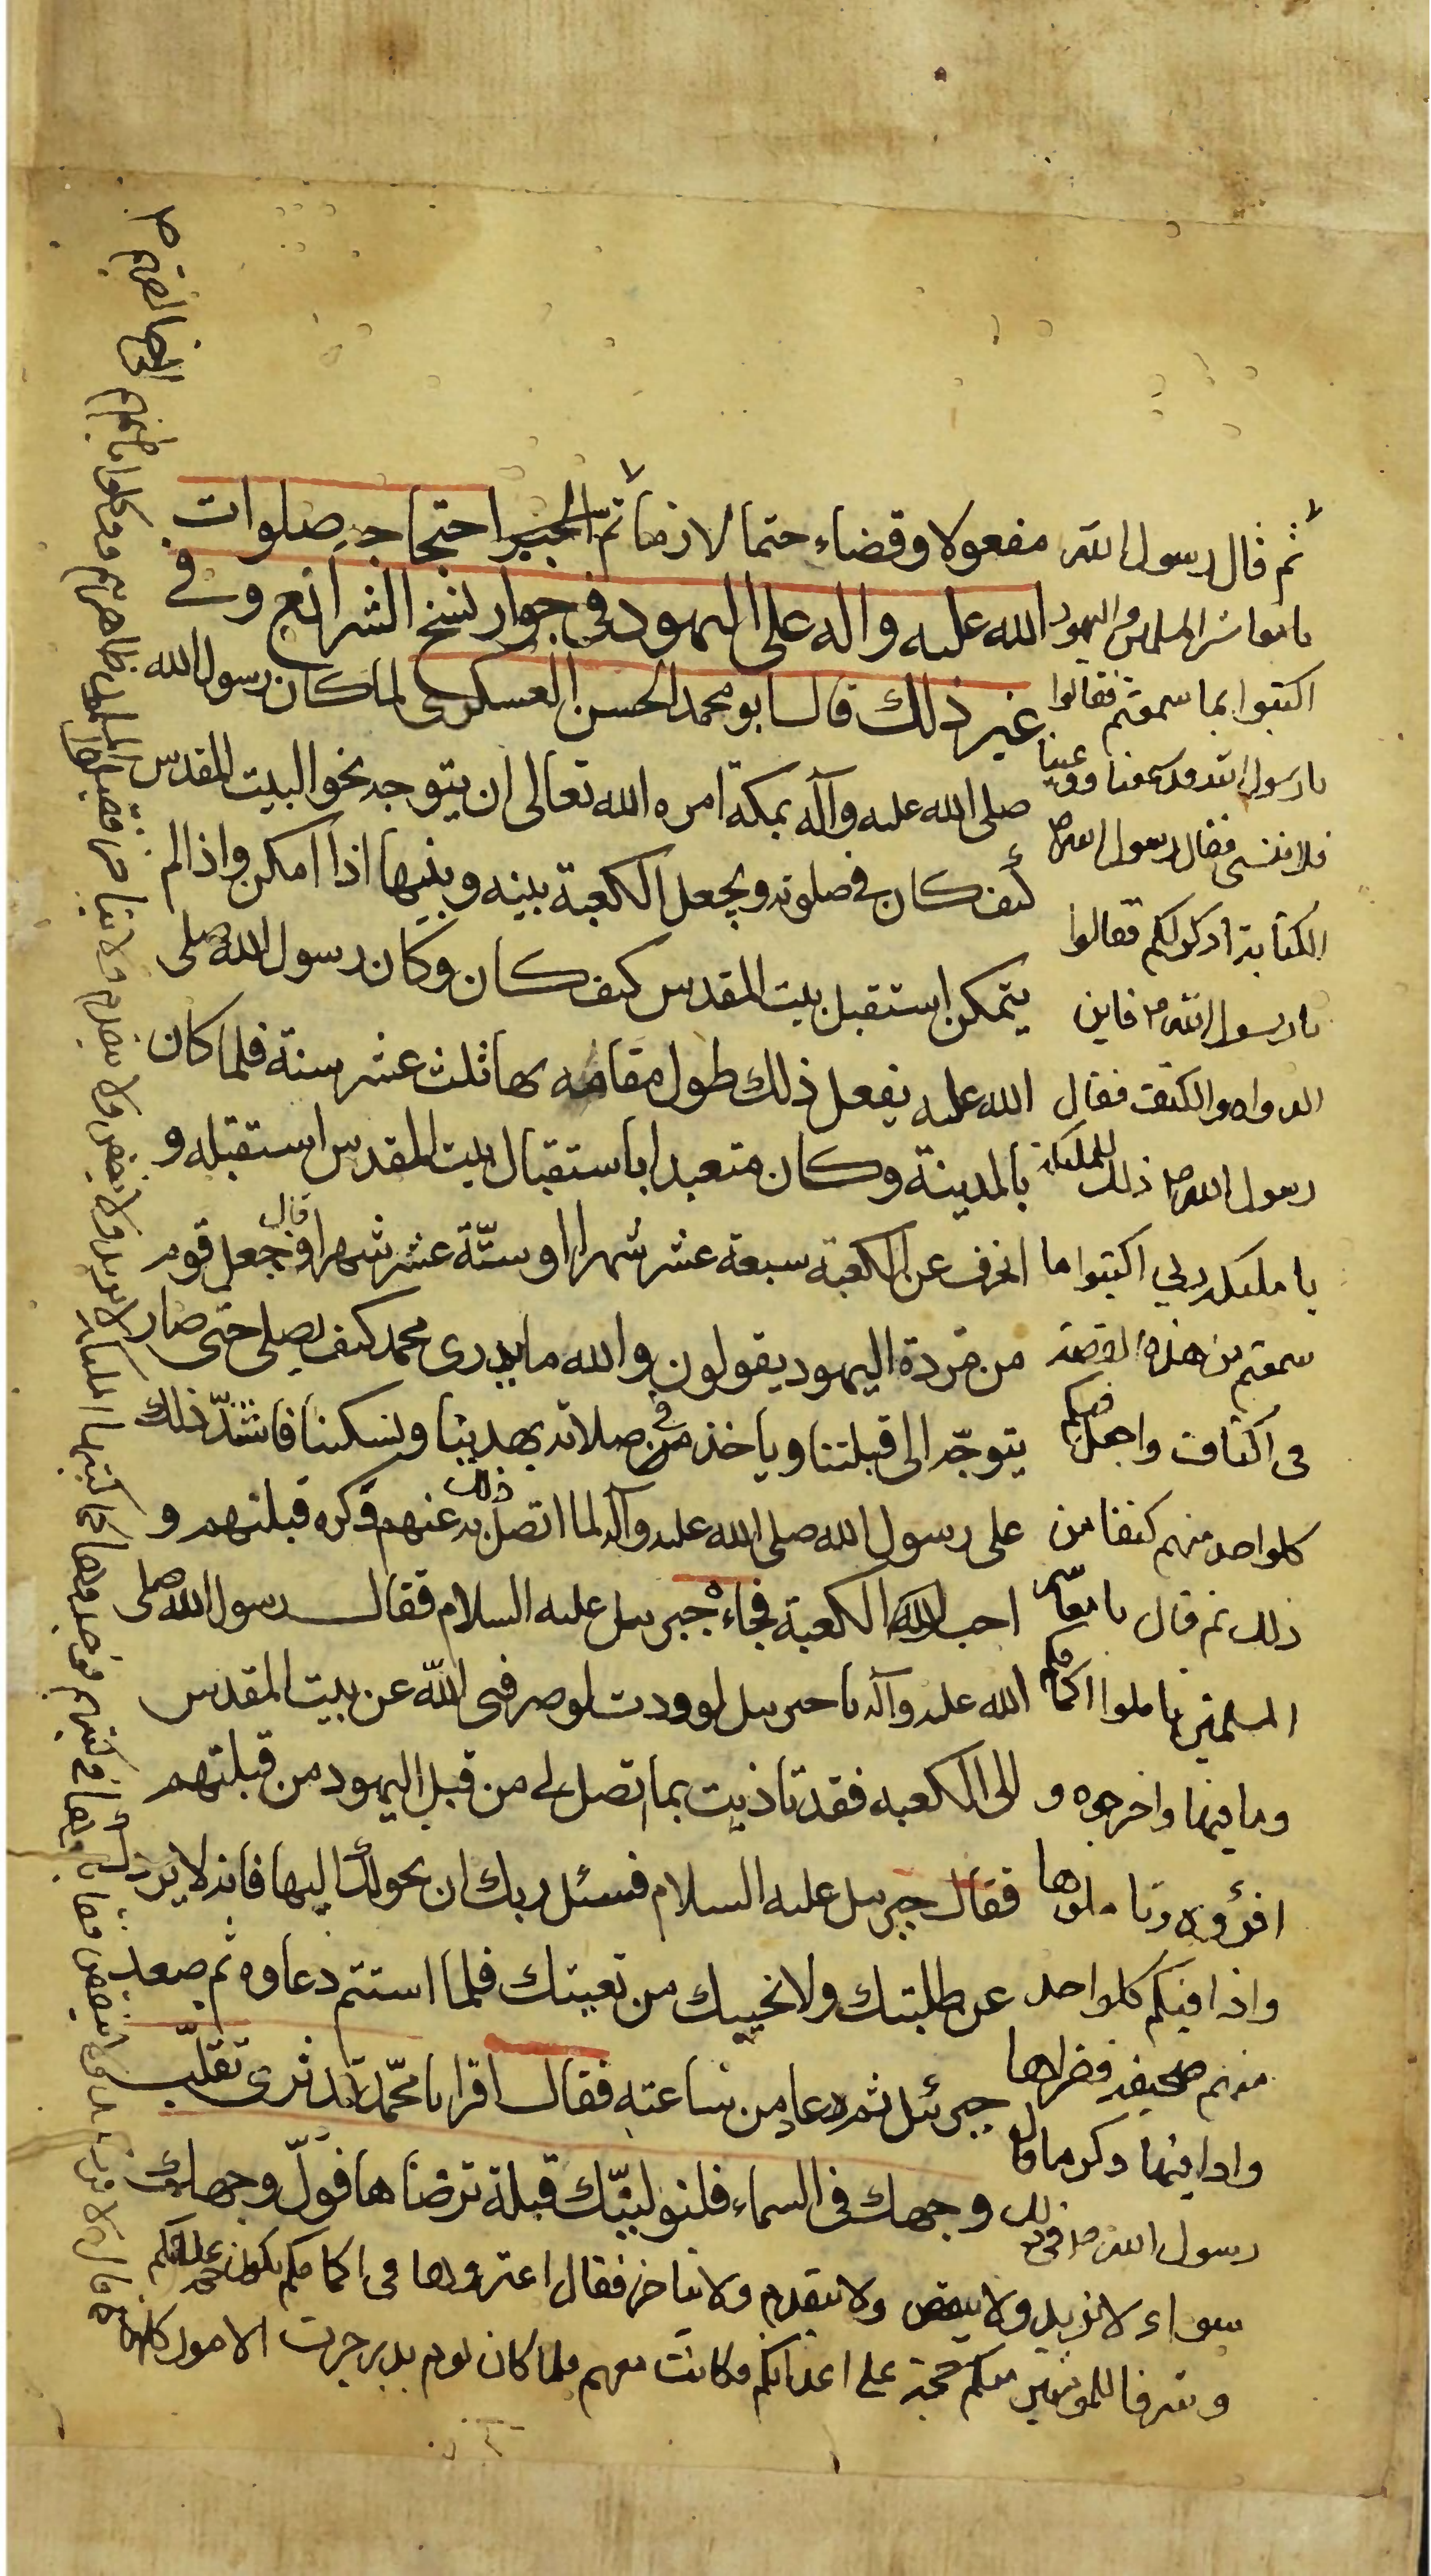 مفعولا وقضاء حتما لازما تم الخبر احتجاجه صلوات
الله عليه واله على اليهود في جواز نسخ الشرائع وفي
غير ذلك قال ابو محمد الحسن العسكرى لما كان رسول الله
صلى الله عليه وآله بمكة امره الله تعالى ان يتوجه نحو البيت المقدس
في صلوته ويجعل الكعبة بينه وبينها اذا امكن واذا لم
يتمكن استقبل بيت المقدس كيف كان وكان رسول الله صلى
الله عليه يفعل ذلك طول مقامه بها ثلث عشر سنة فلما كان
بالمدينة وكان متعبدا باستقبال بيت المقدس استقبله و
انحرف عن الكعبة سبعة عشر شهرا او ستة عشر شهرا وجعل قوم
من مردة اليهود يقولون والله ما يدرى محمد كيف يصلى حتى صار
يتوجه الى قبلتنا وياخذ في صلاته بهدينا ونسكنا فاشتد ذلك
على رسول الله صلى الله عليه وآله لما اتصل به عنهم وكره قبلتهم و
احب الكعبة فجاءه جبرئيل عليه السلام فقال رسول الله صلى
الله عليه وآله يا جبرئيل لوددت لو صرفنى الله عن بيت المقدس
الى الكعبه فقد تاذيت بما اتصل بي من قبل اليهود من قبلتهم
فقال جبرئيل عليه السلام فسئل ربك ان يحولك اليها فانه لا يردك
عن طلبتك ولا نخيبك من بغيتك فلما استتم دعاوه ثم صعد
جبرئيل ثم عاد من ساعته فقال اقرا يا محمد قد نرى تقلب
وجهك في السماء فلنولينك قبلة ترضاها فول وجهك
ثم قال رسول الله
يا معاشر المسلمين واليهود
اكتبوا بما سمعتم فقالوا
يا رسول الله قد سمعنا ووعينا
فلا ننسى فقال رسول الله ص
الكتابة اذكر لكم فقالوا
يا رسول الله ص فاين
الدواة والكتف فقال
رسول الله ص ذلك للملئكة
يا ملئكة ربي اكتبوا ما
سمعتم من هذه القصة
في اكتاف واجعلوا
كل واحد منهم كتفا من
ذلك ثم قال يا معاشر
المسلمين تاملوا اكمامكم
وما فيها واخرجوه و
اقرؤه فتاملوها
واذا في كم كل واحد
منهم صحيفة فقراها
واذا فيها ذكر ما قال
رسول الله ص في ذلك
سواء لا يزيد ولا ينقص ولا يتقدم ولا يتاخر فقال اعتروها في اكمامكم تكون حجة عليكم
وشرفا للمومنين منكم حجة على اعدائكم فكانت معهم فلما كان يوم بدر جرت الامور كلها